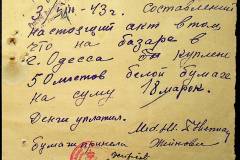 3/VIII-43г. Составлений
настоящий акт в том
что на базаре в
г. Одесса куплен
50 листов белой бумаги
на суму 18 марок.
Деньги уплатил.
бумагу приняла